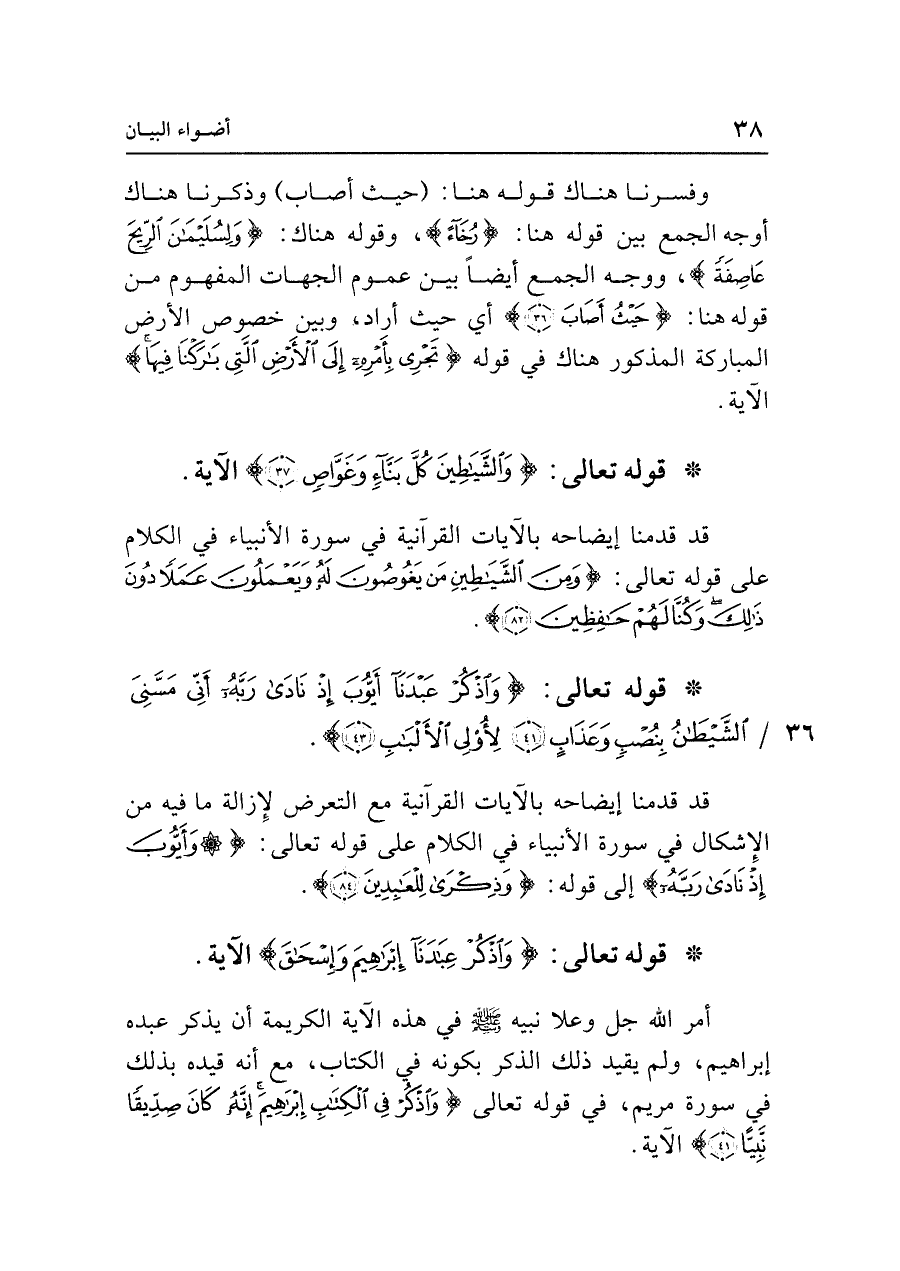 ٣٨ أضواء البيان
وفسرنا هناك قوله هنا: (حيث أصاب) وذكرنا هناك
أوجه الجمع بين قوله هنا: ﴿رُخَآءً﴾، وقوله هناك: ﴿وَلِسُلَيْمَٰنَ ٱلرِّيحَ
عَاصِفَةً﴾، ووجه الجمع أيضاً بين عموم الجهات المفهوم من
قوله هنا: ﴿حَيْثُ أَصَابَ ٣٦﴾ أي حيث أراد، وبين خصوص الأرض
المباركة المذكور هناك في قوله ﴿تَجْرِى بِأَمْرِهِۦٓ إِلَى ٱلْأَرْضِ ٱلَّتِى بَٰرَكْنَا فِيهَاۚ﴾
الآية.
* قوله تعالى: ﴿وَٱلشَّيَٰطِينَ كُلَّ بَنَّآءٍ وَغَوَّاصٍ ٣٧﴾ الآية.
قد قدمنا إيضاحه بالآيات القرآنية في سورة الأنبياء في الكلام
على قوله تعالى: ﴿وَمِنَ ٱلشَّيَٰطِينِ مَن يَغُوصُونَ لَهُۥ وَيَعْمَلُونَ عَمَلًا دُونَ
ذَٰلِكَۖ وَكُنَّا لَهُمْ حَٰفِظِينَ ٨٢﴾.
* قوله تعالى: ﴿وَٱذْكُرْ عَبْدَنَآ أَيُّوبَ إِذْ نَادَىٰ رَبَّهُۥٓ أَنِّى مَسَّنِىَ
٣٦ / ٱلشَّيْطَٰنُ بِنُصْبٍ وَعَذَابٍ ٤١ لِأُوْلِى ٱلْأَلْبَٰبِ ٤٣﴾.
قد قدمنا إيضاحه بالآيات القرآنية مع التعرض لإزالة ما فيه من
الإشكال في سورة الأنبياء في الكلام على قوله تعالى: ﴿۞ وَأَيُّوبَ
إِذْ نَادَىٰ رَبَّهُۥٓ﴾ إلى قوله: ﴿وَذِكْرَىٰ لِلْعَٰبِدِينَ ٨٤﴾.
* قوله تعالى: ﴿وَٱذْكُرْ عِبَٰدَنَآ إِبْرَٰهِيمَ وَإِسْحَٰقَ﴾ الآية.
أمر الله جل وعلا نبيه ﷺ في هذه الآية الكريمة أن يذكر عبده
إبراهيم، ولم يقيد ذلك الذكر بكونه في الكتاب، مع أنه قيده بذلك
في سورة مريم، في قوله تعالى ﴿وَٱذْكُرْ فِى ٱلْكِتَٰبِ إِبْرَٰهِيمَۚ إِنَّهُۥ كَانَ صِدِّيقًا
نَّبِيًّا ٤١﴾ الآية.